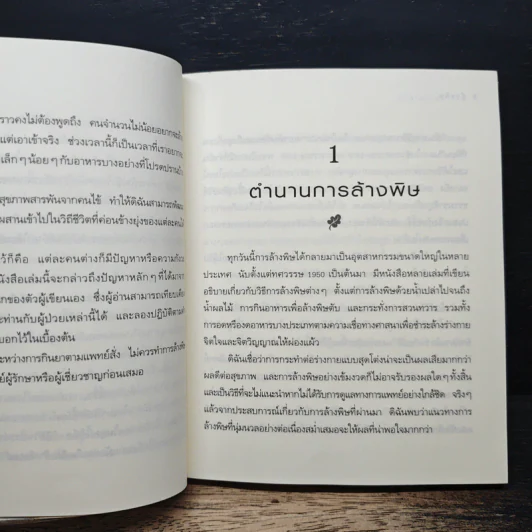 ราวคงไม่ต้องพูดถึง คนจำนวนไม่น้อยอยากจะล้าง
แต่เอาเข้าจริง ช่วงเวลานี้ก็เป็นเวลาที่เราอยาก
เล็กๆน้อยๆกับอาหารบางอย่างที่โปรดปราน
สุขภาพสารพันจากคนไข้ ทำให้ดิฉันสามารถพัฒนา
ผสานเข้าไปในวิถีชีวิตที่ค่อนข้างยุ่งของแต่ละคนได้
ก็คือ แต่ละคนต่างก็มีปัญหาหรือความกังวล
หนังสือเล่มนี้จะกล่าวถึงปัญหาหลักๆที่ได้มาจาก
ของตัวผู้เขียนเอง ซึ่งผู้อ่านสามารถเทียบเคียง
ท่านกับผู้ป่วยเหล่านี้ได้ และลองปฏิบัติตาม
บอกไว้ในเบื้องต้น
ระหว่างการกินยาตามแพทย์สั่ง ไม่ควรทำการล้างพิษ
ผู้รักษาหรือผู้เชี่ยวชาญก่อนเสมอ
1
ตำนานการล้างพิษ
ทุกวันนี้การล้างพิษได้กลายมาเป็นอุตสาหกรรมขนาดใหญ่ในหลาย
ประเทศ นับตั้งแต่ทศวรรษ 1960 เป็นต้นมา มีหนังสือหลายเล่มที่เขียน
อธิบายเกี่ยวกับวิธีการล้างพิษต่างๆ ตั้งแต่การล้างพิษด้วยน้ำเปล่าไปจนถึง
น้ำผลไม้ การกินอาหารเพื่อล้างพิษตับ และกระทั่งการสวนทวาร รวมทั้ง
การอดหรืองดอาหารบางประเภทตามความเชื่อทางศาสนาเพื่อชำระล้างร่างกาย
จิตใจและจิตวิญญาณให้ผ่องแผ้ว
ดิฉันเชื่อว่าการกระทำต่อร่างกายแบบสุดโต่งน่าจะเป็นผลเสียมากกว่า
ผลดีต่อสุขภาพ และการล้างพิษอย่างเข้มงวดก็ไม่อาจรับรองผลใดๆทั้งสิ้น
และเป็นวิธีที่จะไม่แนะนำหากไม่ได้รับการดูแลทางการแพทย์อย่างใกล้ชิด จริงๆ
แล้วจากประสบการณ์เกี่ยวกับการล้างพิษที่ผ่านมา ดิฉันพบว่าแนวทางการ
ล้างพิษที่นุ่มนวลอย่างต่อเนื่องสม่ำเสมอจะให้ผลที่น่าพอใจมากกว่า